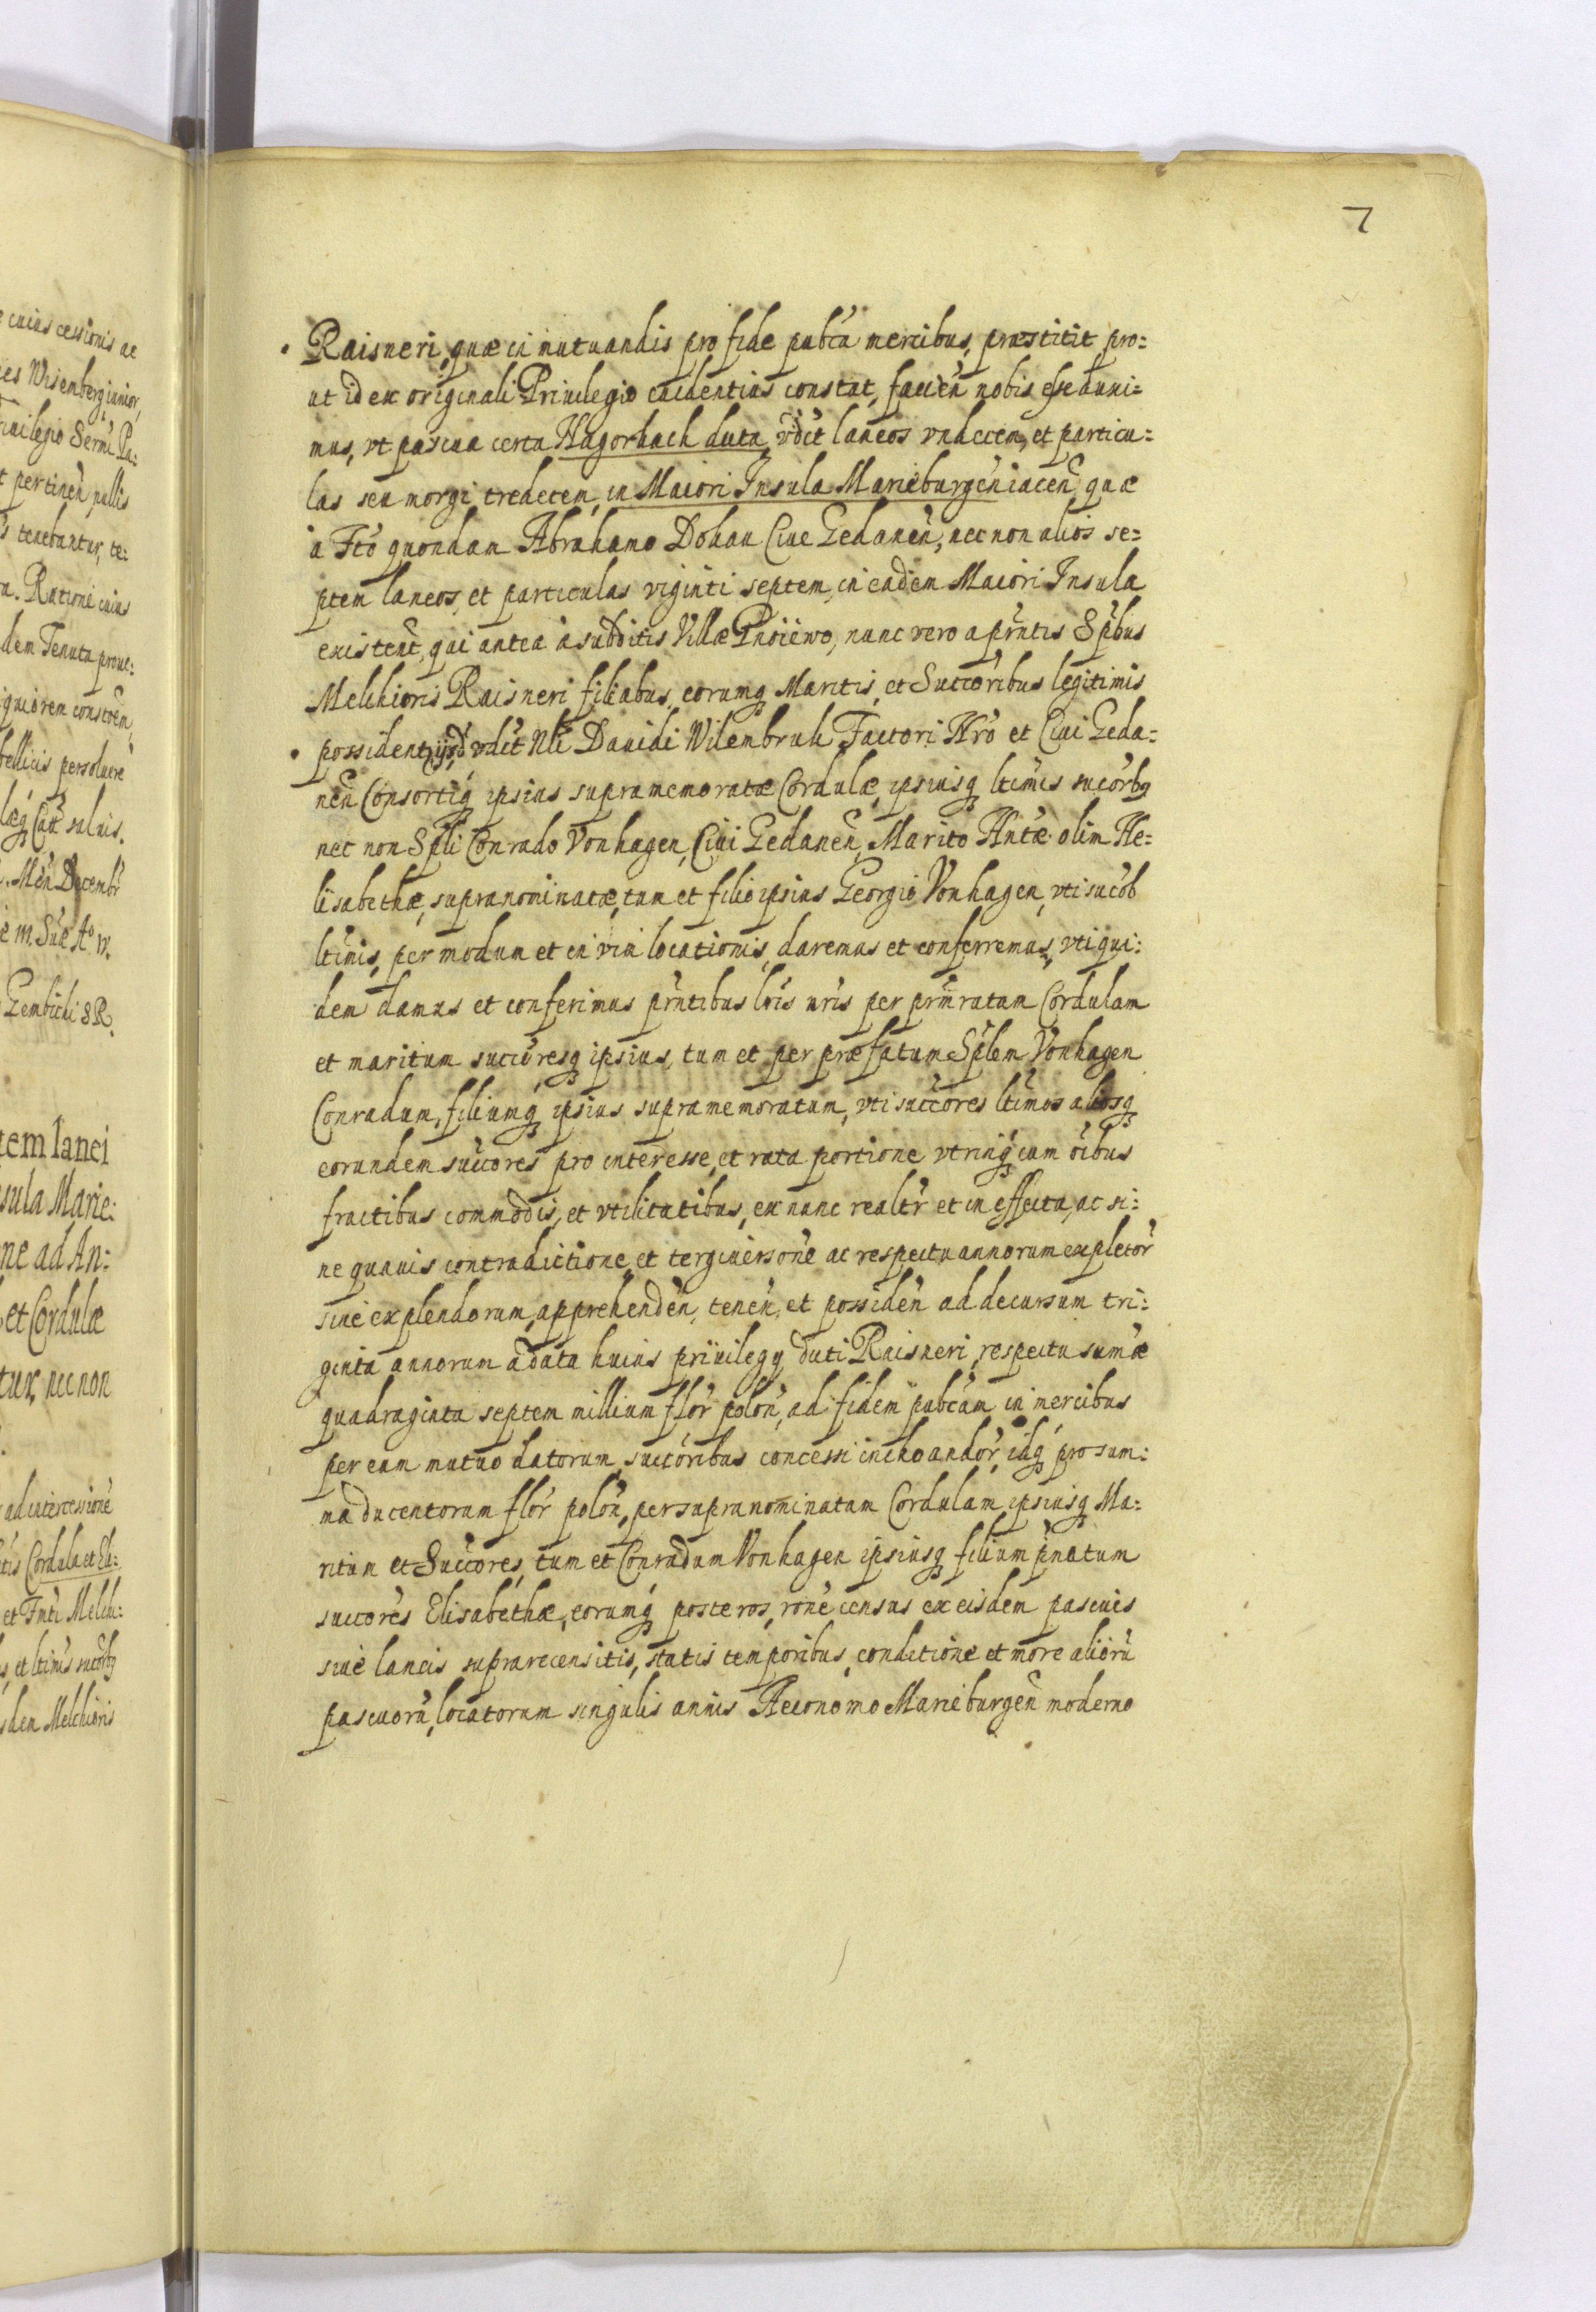 7
e cuius cessionis ac
es Wisenberg iunior,
riuilegio Sermi Pa:
t pertinen nullis
s tenebantur, te:
a. Ratione cuius
dem Tenuta proue:
bellicis persoluere
læq Caӕ saluis.
Men Decembr
Gembicki SR.
tem lanei
sula Marie:
ne ad An:
et Cordulæ
tur, nec non
ad intercessione
Cordula et Eli:
et Melch:
s, et ltimis
sdem Melchioris
Raisneri, quæ in mutuandis pro fide publca mercibus, præstitit pro:
ut id ex originali Priuilegio euidentius constat, facien nobis esse duxi:
mus, vt pascua certa Hagorbach dicta, vdct laneos vndecem, et particu:
las seu morgi tredecem, in Maiori Insula Marieburgen iacen quæ
à Fto quondam Abrahamo Dohau Ciue Gedanen, nec non alios se:
ptem laneos, et particulas viginti septem, in eadem Maiori Insula
existent, qui antea à subditis Villæ Pnsiewo, nunc vero a prntis Spbus
Melchioris Raisneri filiabus, eorumq Maritis, et Succoribus legitimis
possident, vdct Nli Dauidi Wilembruh Factori Nro et Ciui Geda:
nen Consortiq ipsius supramemoratæ Cordulæ, ipsiusq ltimis sucorbq
nec non Spli Conrado Vonhagen, Ciui Gedanen, Marito Antæ olim He:
lisabethæ, supranominatæ, tum et filio ipsius Georgio Vonhagen, vti sucob
ltimis, per modum et in vim locationis, daremus et conferremus, vti qui:
dem damus et conferimus prntibus lris nris per prmratam Cordulam
et maritum succoresq ipsius, tum et per præfatum Splem Vonhagen
Conradum, filiumq ipsius supramemoratum, vti succores ltimos aliosq
eorundem succores pro interesse, et rata portione vtrinq cum oibus
fructibus commodis, et vtilitatibus, ex nunc realtr et in effectu, ac si:
ne quauis contradictione et tergiuersone ac respectu annorum expletor
siue explendorum, apprehenden, tenen, et possiden ad decursum tri:
ginta annorum a data huius priuilegy, dicti Raisneri, respectu sumæ
quadraginta septem millium flor polon, ad fidem pubcam in mercibus
per eum mutuo datorum, succoribus concessi inchoandor, idq pro sum:
ma ducentorum flor polon, per supranominatam Cordulam, ipsiusq Ma:
ritum et Succores, tum et Conradum Vonhagen ipsiusq filium pnatum
succores Elisabethæ, eorumq posteros, rone census ex eisdem pascuis
siue laneis suprarecensitis, statis temporibus, conditione et more aliorū
pascuorū, locatorum singulis annis Aeconomo Marieburgen moderno